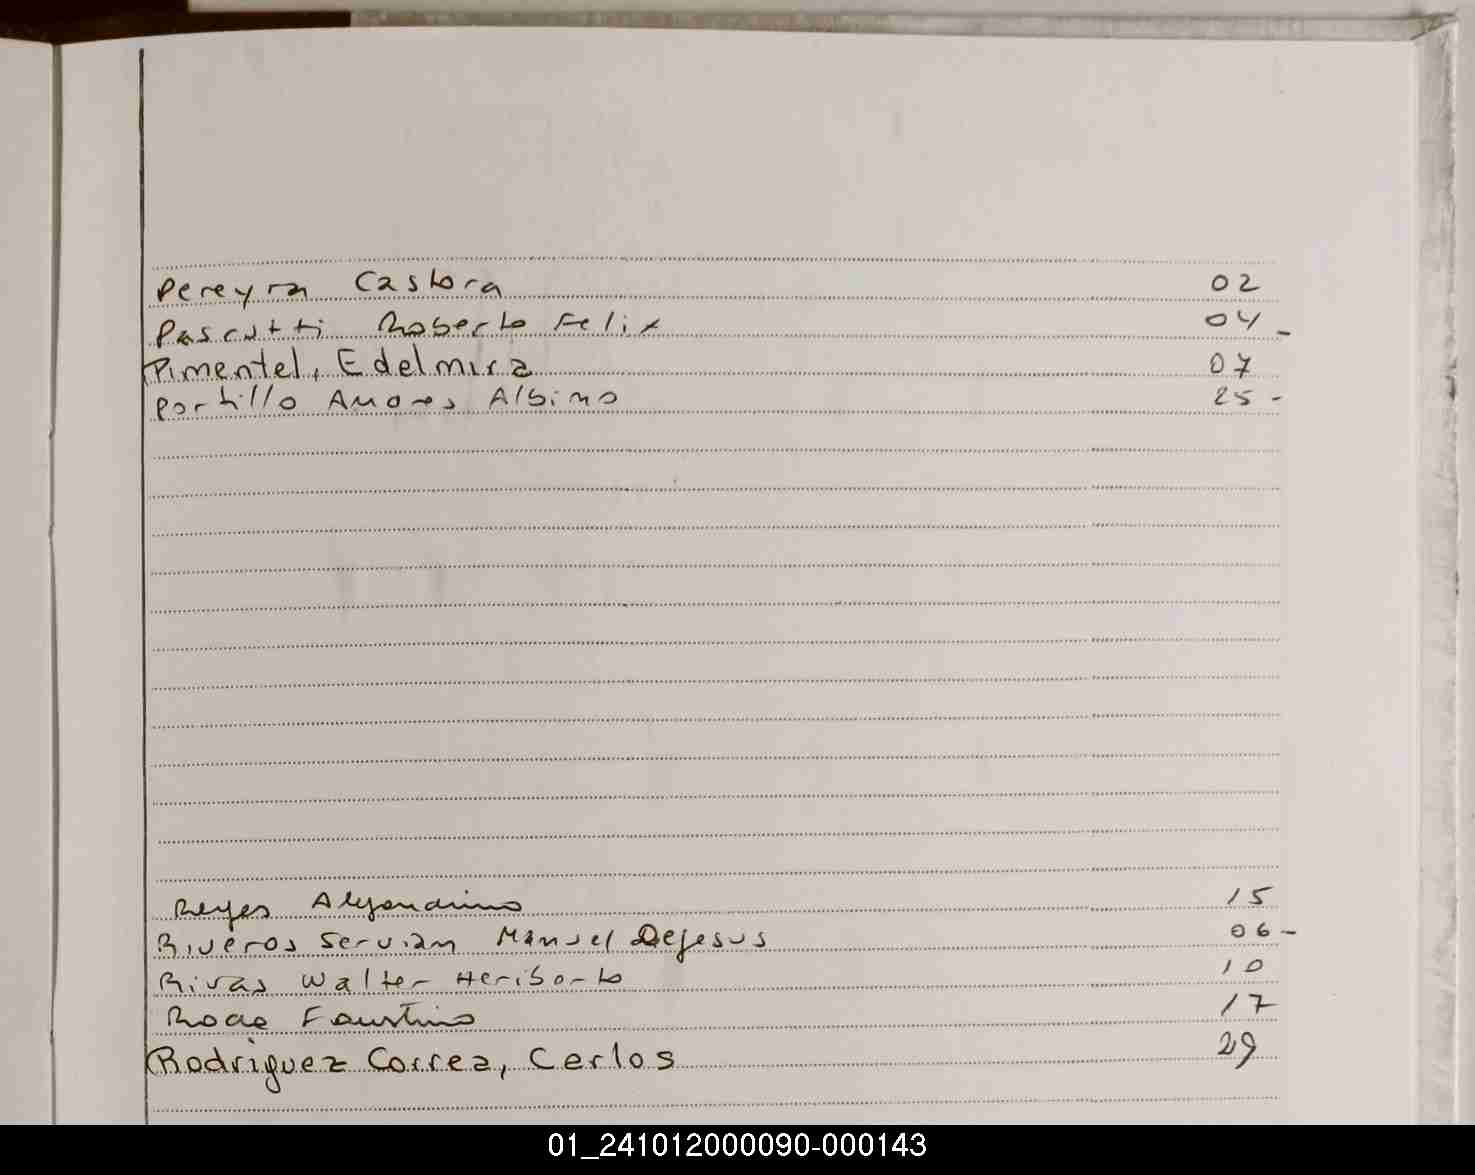 Pereyra Castora 02
Pascutti Roberto Felix 04 -
Pimentel, Edelmira 07
Portillo Andres Albino 25 -
Reyes Alejandrino 15
Riveros Servian Manuel Dejesus 06 -
Rivas Walter Heriberto 10
Faustino 17
Rodriguez Correa, Carlos 29
01_241012000090-000143